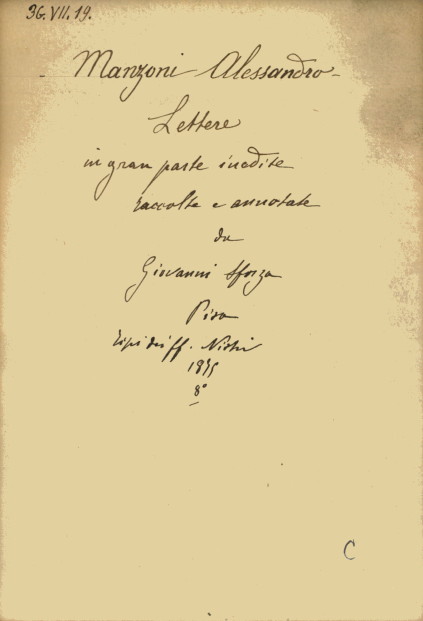 36.VII.19.
Manzoni Alessandro
Lettere
in gran parte inedite
raccolte e annotate
da
Giovanni Sforza
Pisa
Tipi dei ff. Nistri
1875
8°
C